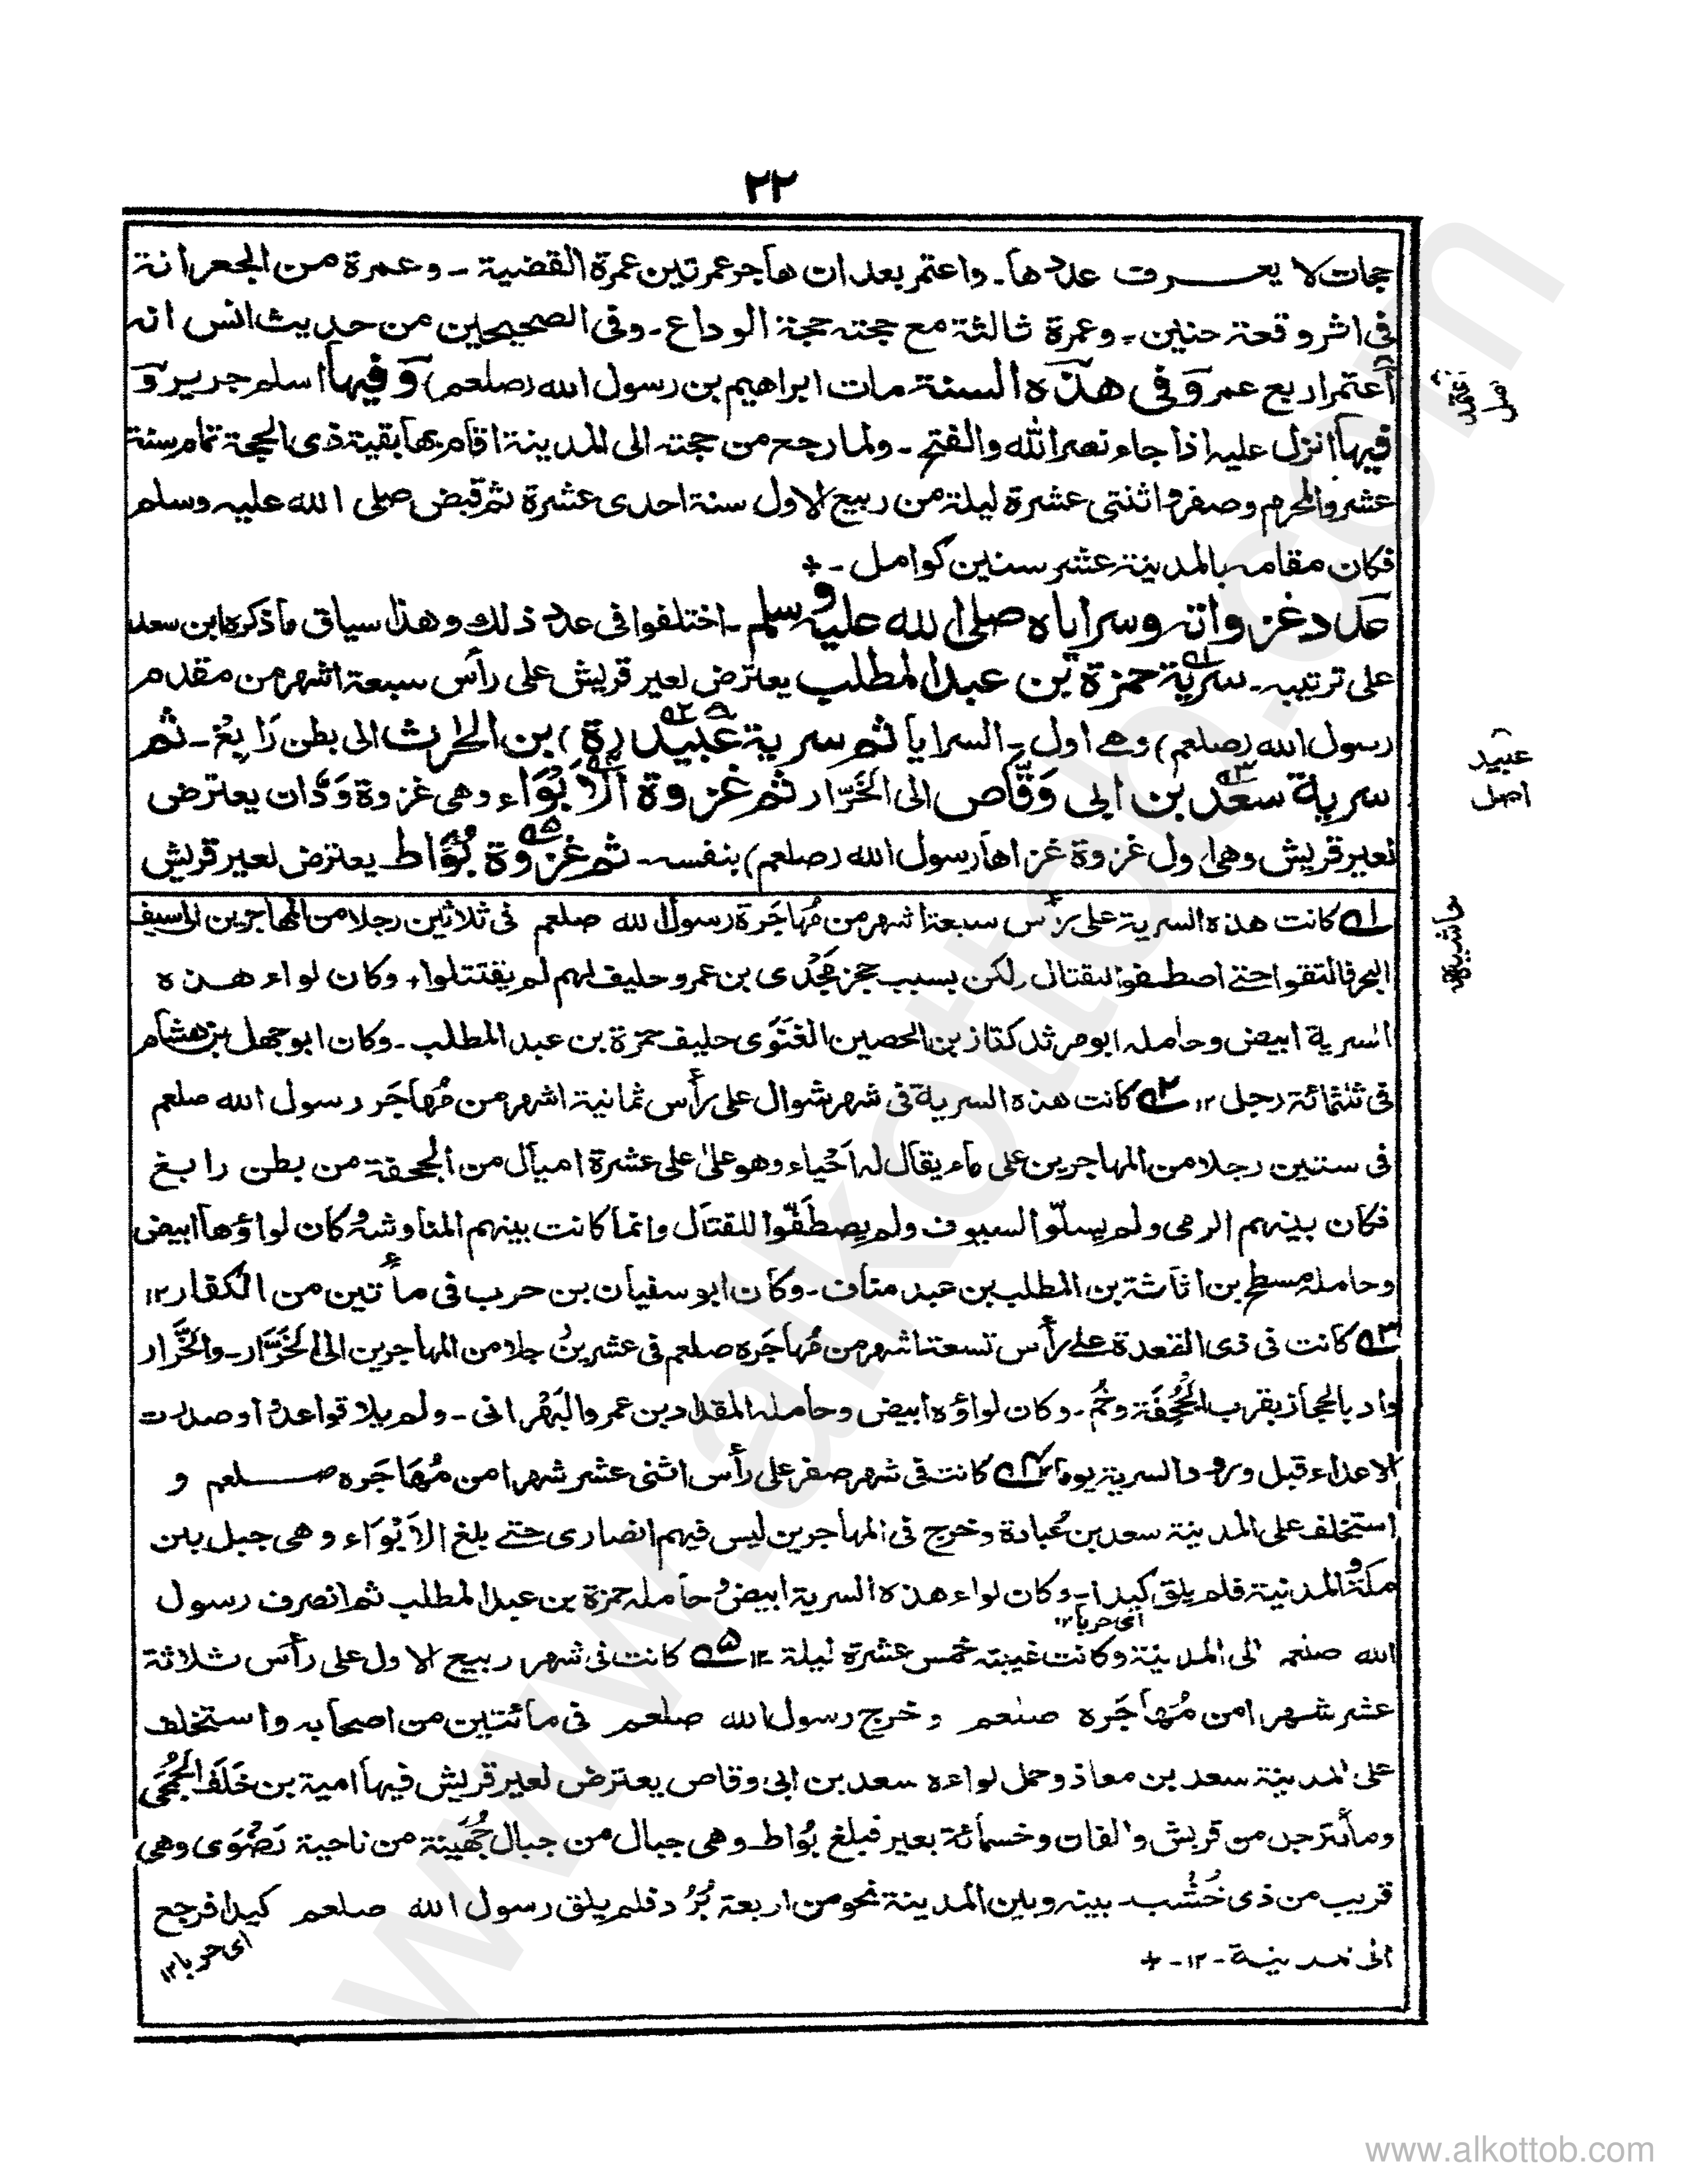 ٢٢
حجات لا يعرف عددها۔ واعتمر بعد ان هاجر عمرتين عمرة القضية ۔ وعمرة من الجعرانة
فى اثر وقعة حنين۔ وعمرة ثالثة مع حجته حجة الوداع۔ وفى الصحيحين من حديث انس انه
اعتمر اربع عمر وَفى هذه السنة مات ابراهيم بن رسول الله (صلعم) وَفيها اسلم جرير وَ
فيها انزل عليه اذا جاء نصر الله والفتح ۔ ولما رجع من حجته الى المدينة اقام بها بقية ذى الحجة تمام سنة
عشر والمحرم وصفر واثنتى عشرة ليلة من ربيع الاول سنة احدى عشرة ثم قبض صلى الله عليه وسلم
فكان مقامه بالمدينة عشر سنين كوامل ۔ +
عدد غزواته وسراياه صلى الله عليه وسلم ۔ اختلفوا فى عدد ذلك وهذا سياق ما ذكره ابن سعد
على ترتيبه۔ سرية حمزة بن عبد المطلب يعترض لعير قريش على رأس سبعة اشهر من مقدم
رسول الله (صلعم) وهے اول ۔ السرايا ثم سرية عبيد(ة) بن الحارث الى بطن رَابِغْ۔ ثم
سرية سعد بن ابى وَقّاص الى الخَرّار ثم غزوة الاَبْوَاء وهى غزوة وَدَّان يعترض
لعير قريش وهى اول غزوة غزاها رسول الله (صلعم) بنفسه ۔ ثم غزوة بُوَاط يعترض لعير قريش
اعتمر
اصل
عبيد
اصل
حاشية
١ كانت هذه السرية على رأس سبعة اشهر من مُهاجَرة رسول الله صلعم فى ثلاثين رجلا من المهاجرين الى سيف
البحر فالتقوا حتے اصطفوا للقتال لكن بسبب حجز مَجْدى بن عمرو حليف لهم لم يقتتلوا، وكان لواء هذه
السرية ابيض وحامله ابو مرثد كناز بن الحصين الغَنَوى حليف حمزة بن عبد المطلب ۔ وكان ابو جهل بن هشام
فى ثلثمائة رجل ١٢ ٢ كانت هذه السرية فى شهر شوال على رأس ثمانية اشهر من مُهاجَر رسول الله صلعم
فى ستين رجلا من المهاجرين على ماء يقال له اَحْياء وهو على على عشرة اميال من الجحفة من بطن رابغ
فكان بينهم الرمى ولم يسلّوا السيوف ولم يصطَفّوا للقتال وانما كانت بينهم المناوشة وكان لواؤها ابيض
وحامله مسطح بن اثاثة بن المطلب بن عبد مناف ۔ وكان ابو سفيان بن حرب فى مأتين من الكفار ١٢
٣ كانت فى ذى القعدة علے رأس تسعة اشهر من مُهاجَره صلعم فى عشرين رجلا من المهاجرين الى الخَرّار۔ والخَرّار
واد بالحجاز بقرب الجُحْفَة وخُم ۔ وكان لواؤه ابيض وحامله المقداد بن عمرو البَهْرانى ۔ ولم يلاقوا عدوا وصدرت
الاعداء قبل ورود السرية بيوم ٤ كانت فى شهر صفر على رأس اثنى عشر شهرا من مُهَاجَره صلعم و
استخلف على المدينة سعد بن عُبادة وخرج فى المهاجرين ليس فيهم انصارى حتے بلغ الاَبْوَاء وهى جبل بين
مكة والمدينة فلم يلق كيدا ۔ وكان لواء هذه السرية ابيض وحامله حمزة بن عبد المطلب ثم انصرف رسول
اى حربا ١٢
الله صلعم الى المدينة وكانت غيبته خمس عشرة ليلة ١٢ ٥ كانت فى شهر ربيع الاول على رأس ثلاثة
عشر شهرا من مُهَاجَره صلعم وخرج رسول الله صلعم فى مائتين من اصحابه واستخلف
على المدينة سعد بن معاذ وحمل لواءه سعد بن ابى وقاص يعترض لعير قريش فيها امية بن خَلَف الجُمَحَى
ومأة رجل من قريش والفان وخسمائة بعير فبلغ بُوَاط وهى جبال من جبال جُهَينة من ناحية رَضْوَى وهى
قريب من ذى خُشُب ۔ بينه وبين المدينة نحو من اربعة بُرُد فلم يلق رسول الله صلعم كيدا فرجع
الى المدينة ۔ ١٢ ۔ +
اى حربا ١٢
www.alkottob.com
www.alkottob.com